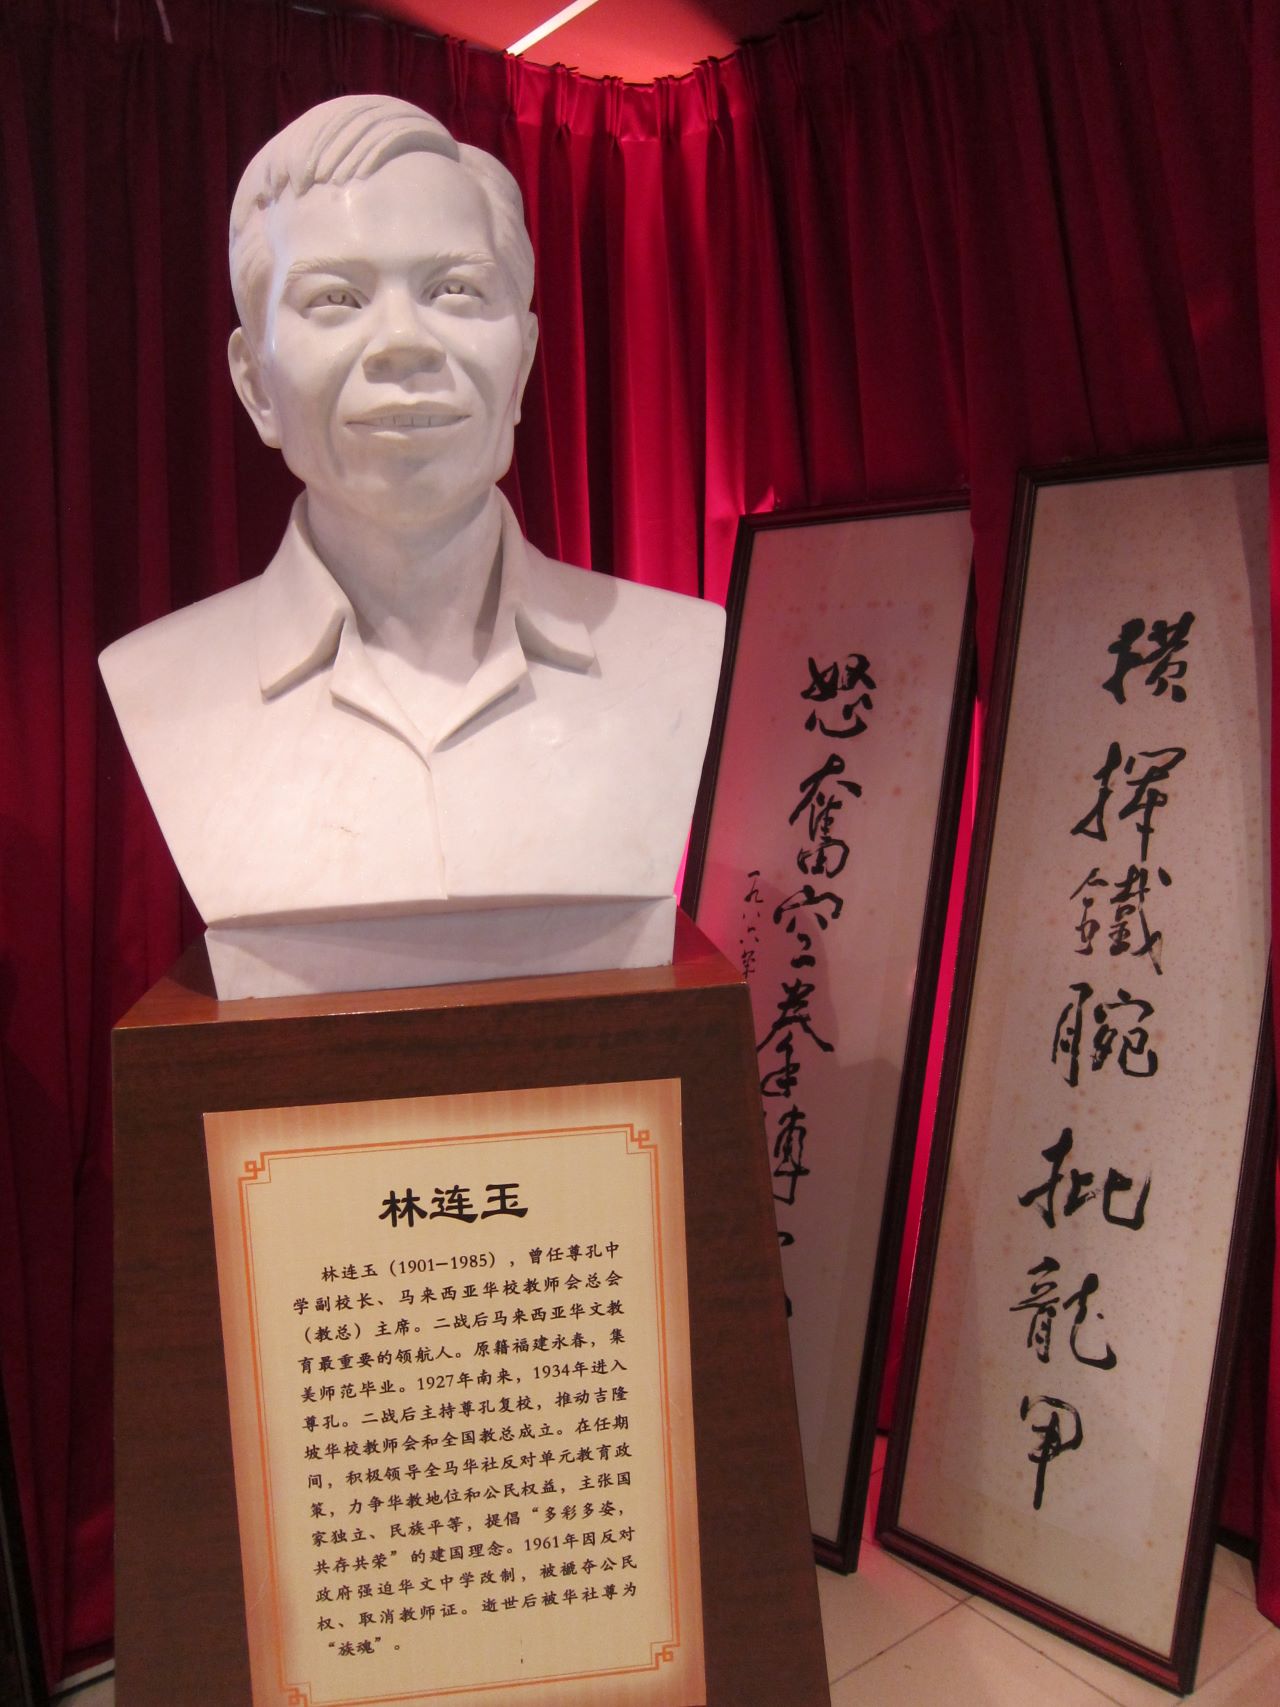 林连玉
林连玉（1901—1985），曾任尊孔中
学副校长、马来西亚华校教师会总会
（教总）主席。二战后马来西亚华文教
育最重要的领航人。原籍福建永春，集
美师范毕业。1927年南来，1934年进入
尊孔。二战后主持尊孔复校，推动吉隆
坡华校教师会和全国教总成立。在任期
间，积极领导全马华社反对单元教育政
策，力争华教地位和公民权益，主张国
家独立、民族平等，提倡“多彩多姿，
共存共荣”的建国理念。1961年因反对
政府强迫华文中学改制，被褫夺公民
权、取消教师证。逝世后被华社尊为
“族魂”。
横挥鐵腕批龍甲
怒奮空拳搏
一九八六年